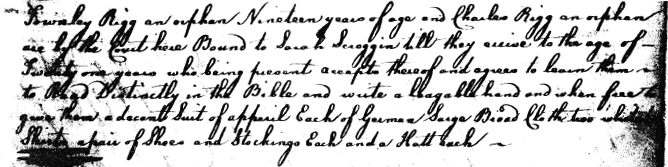 Townley Rigg an orphan Nineteen years of age and Charles Rigg an orphan
are by the Court here Bound to Sarah Scroggin till they arive to the age of
Twenty one years who being present accepts thereof and agrees to learn them
to Read Distinctly in the Bible and write a leagable hand and when free to
give them a decent Suit of apperil Each of German Sarge Broad Cloth two white
Shirts a pair of Shoes and Stockings Each and a Hatt each